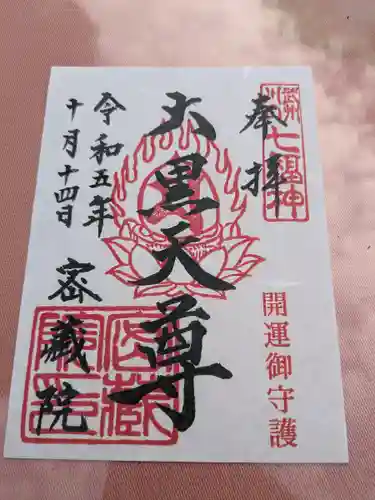 武州川口七福神
奉拝
開運御守護
大黒天尊
令和五年
十月十四日
密蔵院